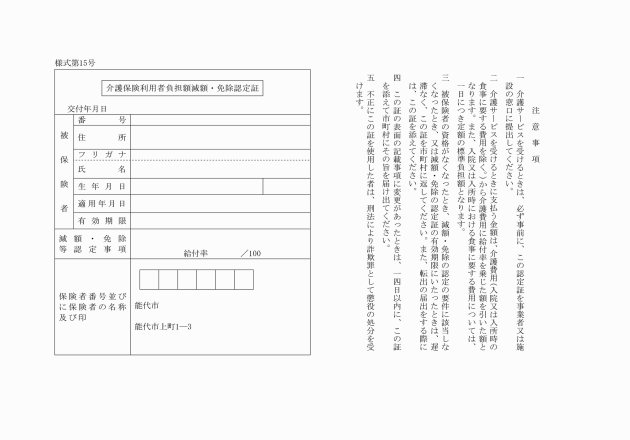 様式第15号
介護保険利用者負担額減額・免除認定証
交付年月日
被保険者
番号
住所
フリガナ
氏名
生年月日
適用年月日
有効期限
減額・免除
等認定事項
給付率 ／100
保険者番号並び
に保険者の名称
及び印
能代市
能代市上町1―3
注意事項
一 介護サービスを受けるときは、必ず事前に、この認定証を事業者又は施
設の窓口に提出してください。
二 介護サービスを受けるときに支払う金額は、介護費用(入院又は入所時の
食事に要する費用を除く。)から介護費用に給付率を乗じた額を引いた額と
なります。また、入院又は入所時における食事に要する費用については、
一日につき定額の標準負担額となります。
三 被保険者の資格がなくなったとき、減額・免除の認定の要件に該当しな
くなったとき、又は減額・免除の認定証の有効期限にいたったときは、遅
滞なく、この証を市町村に返してください。また、転出の届出をする際に
は、この証を添えてください。
四 この証の表面の記載事項に変更があったときは、一四日以内に、この証
を添えて市町村にその旨を届け出てください。
五 不正にこの証を使用した者は、刑法により詐欺罪として懲役の処分を受
けます。